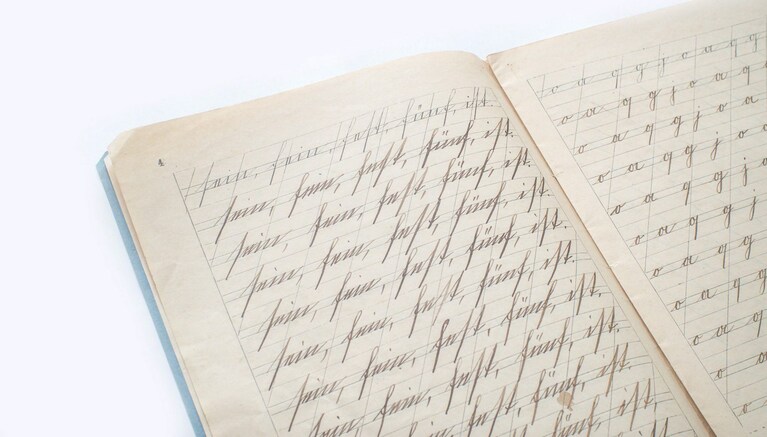 4
sein, fein, fest, fünf, ist.
sein, fein, fest, fünf, ist.
sein, fein, fest, fünf, ist.
sein, fein, fest, fünf, ist.
sein, fein, fest, fünf, ist.
sein, fein, fest, fünf, ist.
sein, fein, fest, fünf, ist.
sein, fein, fest, fünf, ist.
fest, fünf, ist.
fünf, ist.
o a q g j o a q g
o a q g j o a q
o a q g j o a
o a q g j o
o a q g j o
o a q g j
o a q g
o a q g
o a q
o a
o